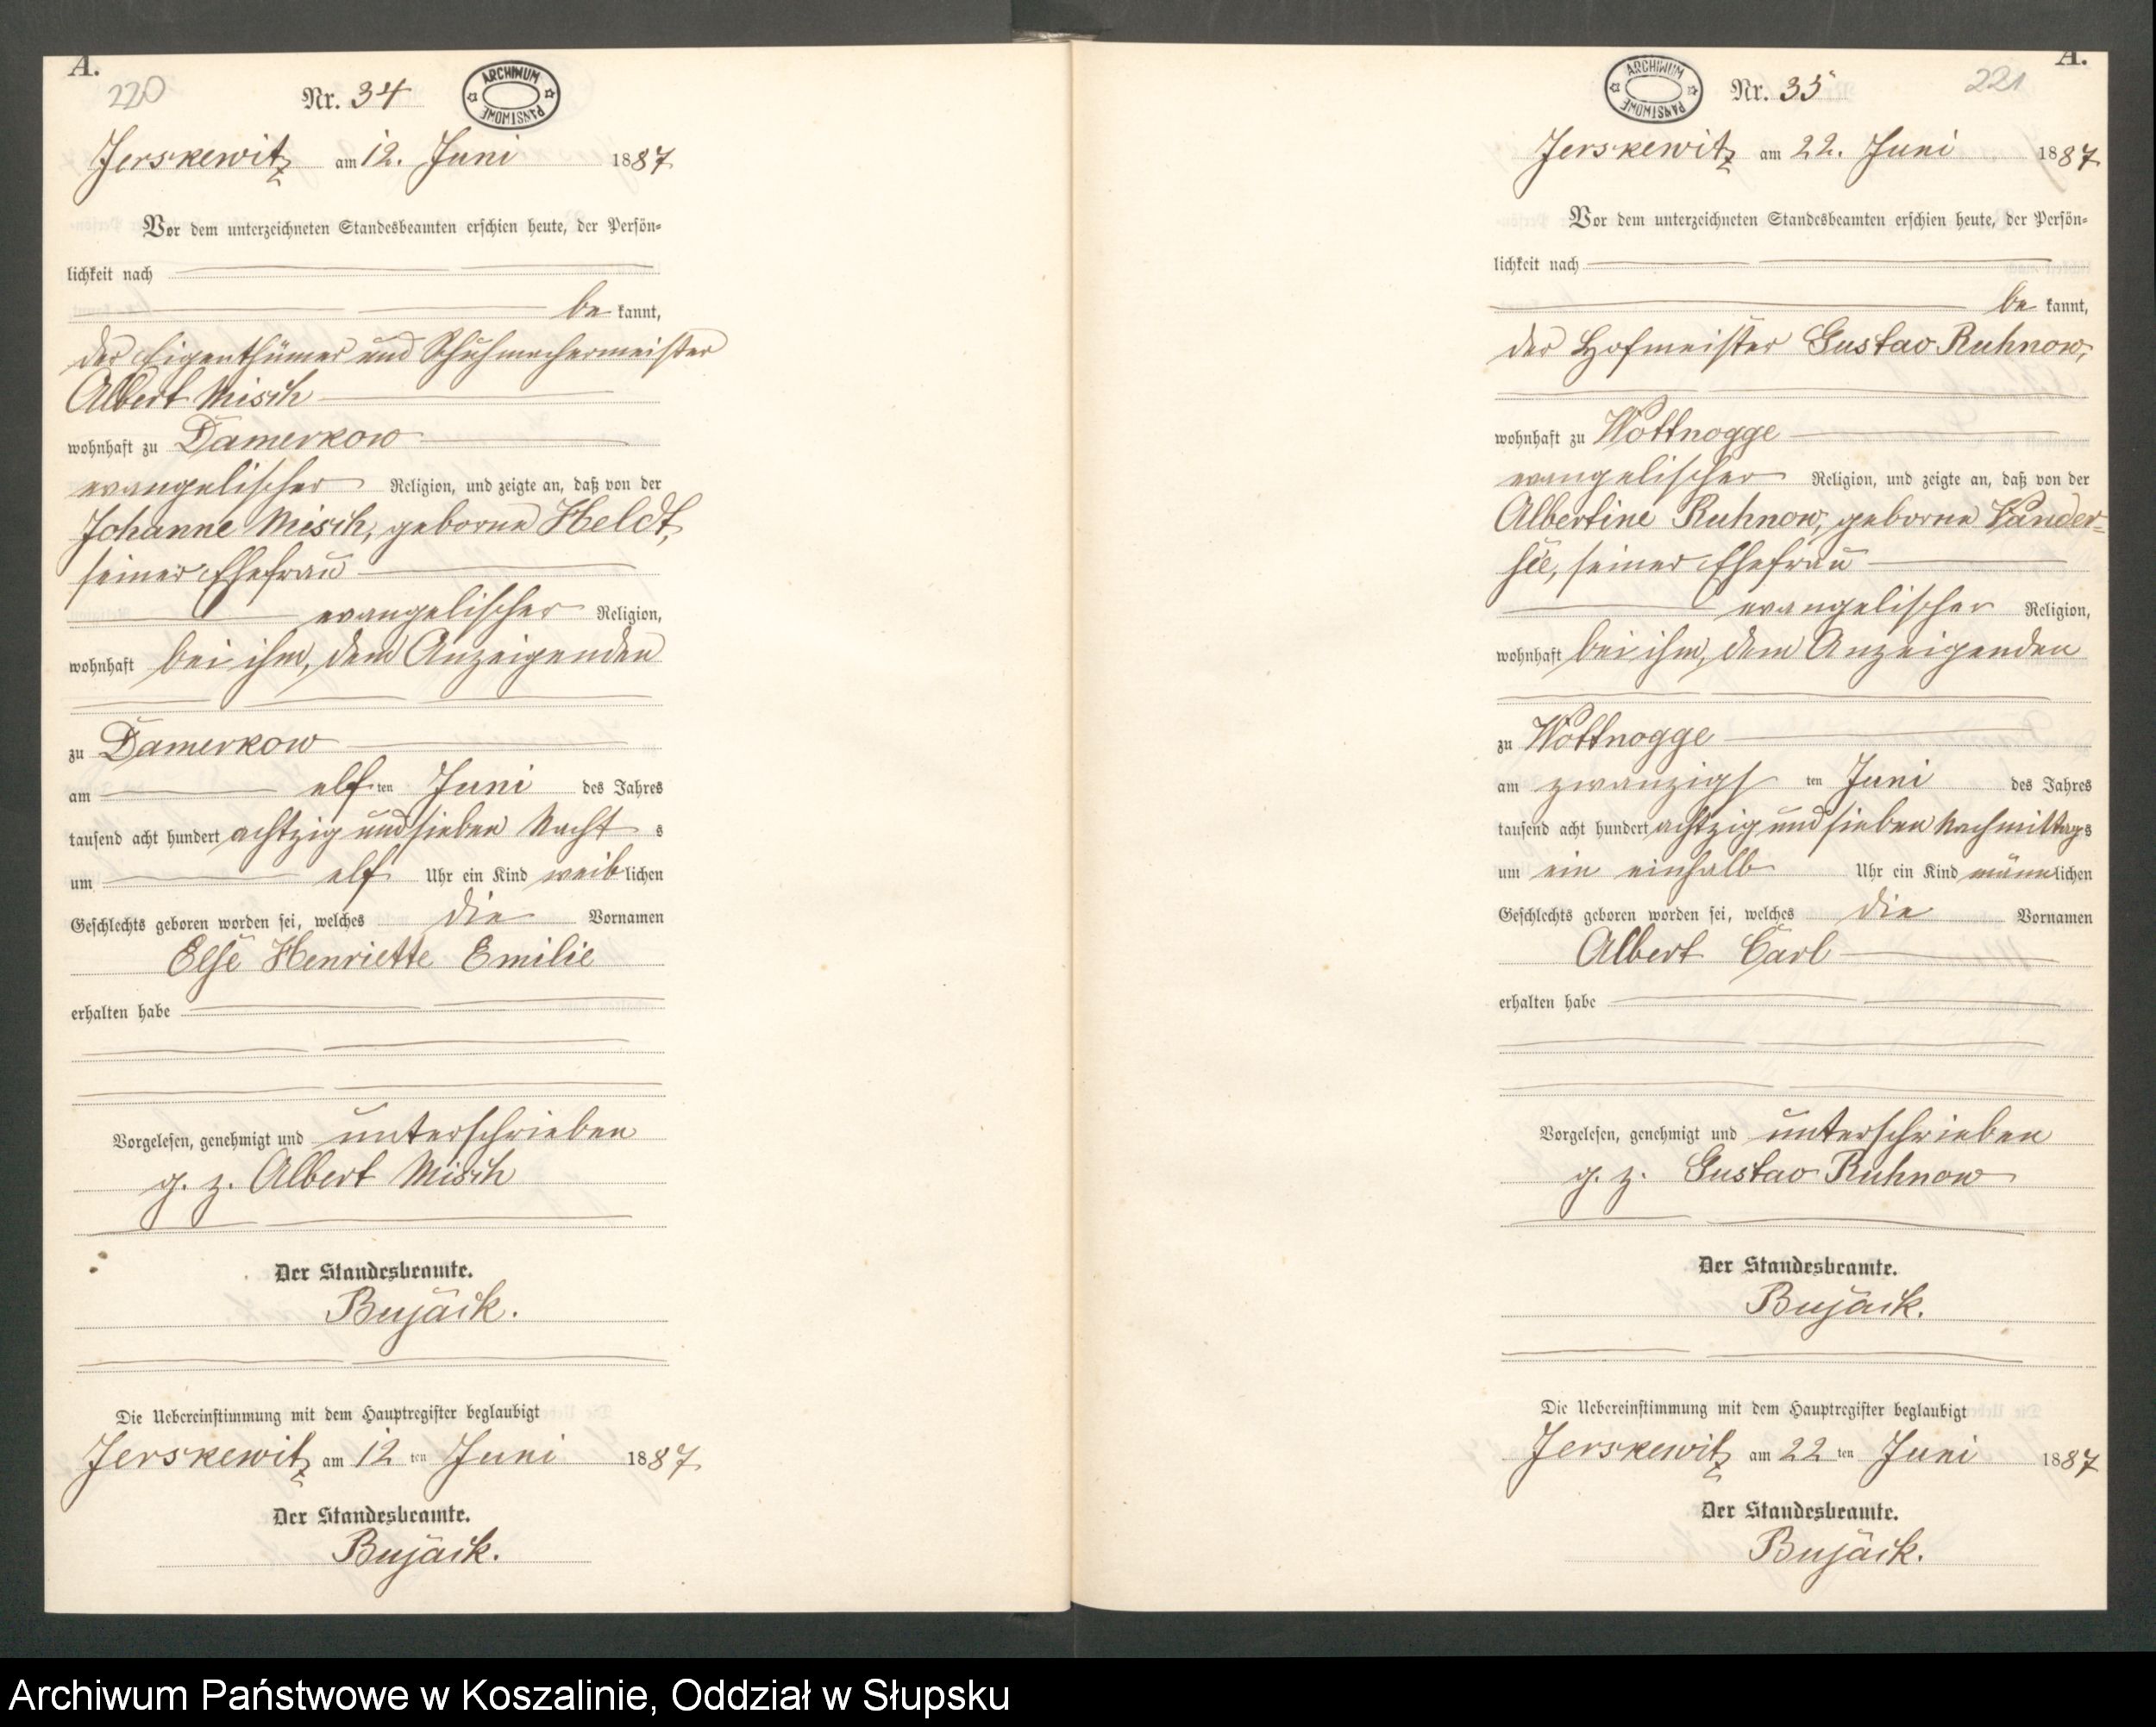 A.
220
Nr. 34
ARCHIWUM PAŃSTWOWE
Jerskewitz am 12. Juni 1887
Vor dem unterzeichneten Standesbeamten erschien heute, der Persön-
lichkeit nach
be kannt,
der Eigenthümer und Schuhmachermeister
Albert Misch
wohnhaft zu Damerkow
evangelischer Religion, und zeigte an, daß von der
Johanne Misch, geborne Heldt,
seiner Ehefrau
evangelischer Religion,
wohnhaft bei ihm, dem Anzeigenden
zu Damerkow
am elf ten Juni des Jahres
tausend acht hundert achtzig und sieben Nacht s
um elf Uhr ein Kind weib lichen
Geschlechts geboren worden sei, welches die Vornamen
Else Henriette Emilie
erhalten habe
Vorgelesen, genehmigt und unterschrieben
g. z. Albert Misch
Der Standesbeamte.
Bujack.
Die Uebereinstimmung mit dem Hauptregister beglaubigt
Jerskewitz am 12 ten Juni 1887
Der Standesbeamte.
Bujack.
A.
221
Nr. 35
ARCHIWUM PAŃSTWOWE
Jerskewitz am 22. Juni 1887
Vor dem unterzeichneten Standesbeamten erschien heute, der Persön-
lichkeit nach
be kannt,
der Hofmeister Gustav Ruhnow,
wohnhaft zu Wottnogge
evangelischer Religion, und zeigte an, daß von der
Albertine Ruhnow, geborne Vander-
see, seiner Ehefrau
evangelischer Religion,
wohnhaft bei ihm, dem Anzeigenden
zu Wottnogge
am zwanzigs ten Juni des Jahres
tausend acht hundert achtzig und sieben Nachmittags
um ein einhalb Uhr ein Kind männ lichen
Geschlechts geboren worden sei, welches die Vornamen
Albert Carl
erhalten habe
Vorgelesen, genehmigt und unterschrieben
g. z. Gustav Ruhnow
Der Standesbeamte.
Bujack.
Die Uebereinstimmung mit dem Hauptregister beglaubigt
Jerskewitz am 22 ten Juni 1887
Der Standesbeamte.
Bujack.
Archiwum Państwowe w Koszalinie, Oddział w Słupsku